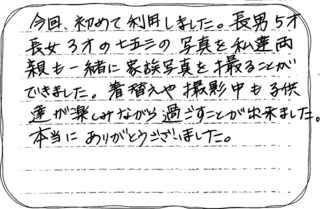 今回、初めて利用しました。長男5才
長女3才の七五三の写真を私達両
親も一緒に家族写真を撮ることが
できました。着替えや撮影中も子供
達が楽しみながら過ごすことが出来ました。
本当にありがとうございました。